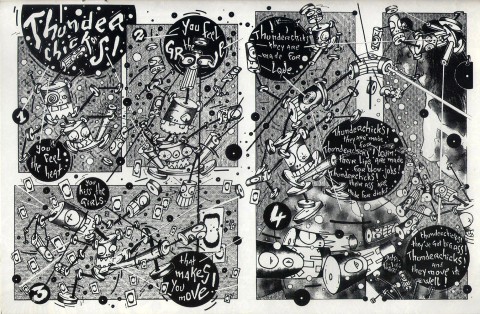 Thundea
chicks!
1
you
feel
the heat
2
you feel
the
GR
3
you kiss the
GIRLS
that
makes
you
move!
Thunderchicks!
they are
made for
Love
Thunderchicks!
they are made
Thunderchicks! again!
Their Lips are made
for blow-jobs!
Thunderchicks!
Their ass are
made for
4
Thunderchicks!
they've got big ass!
Thunderchicks!
and
they move it
well!